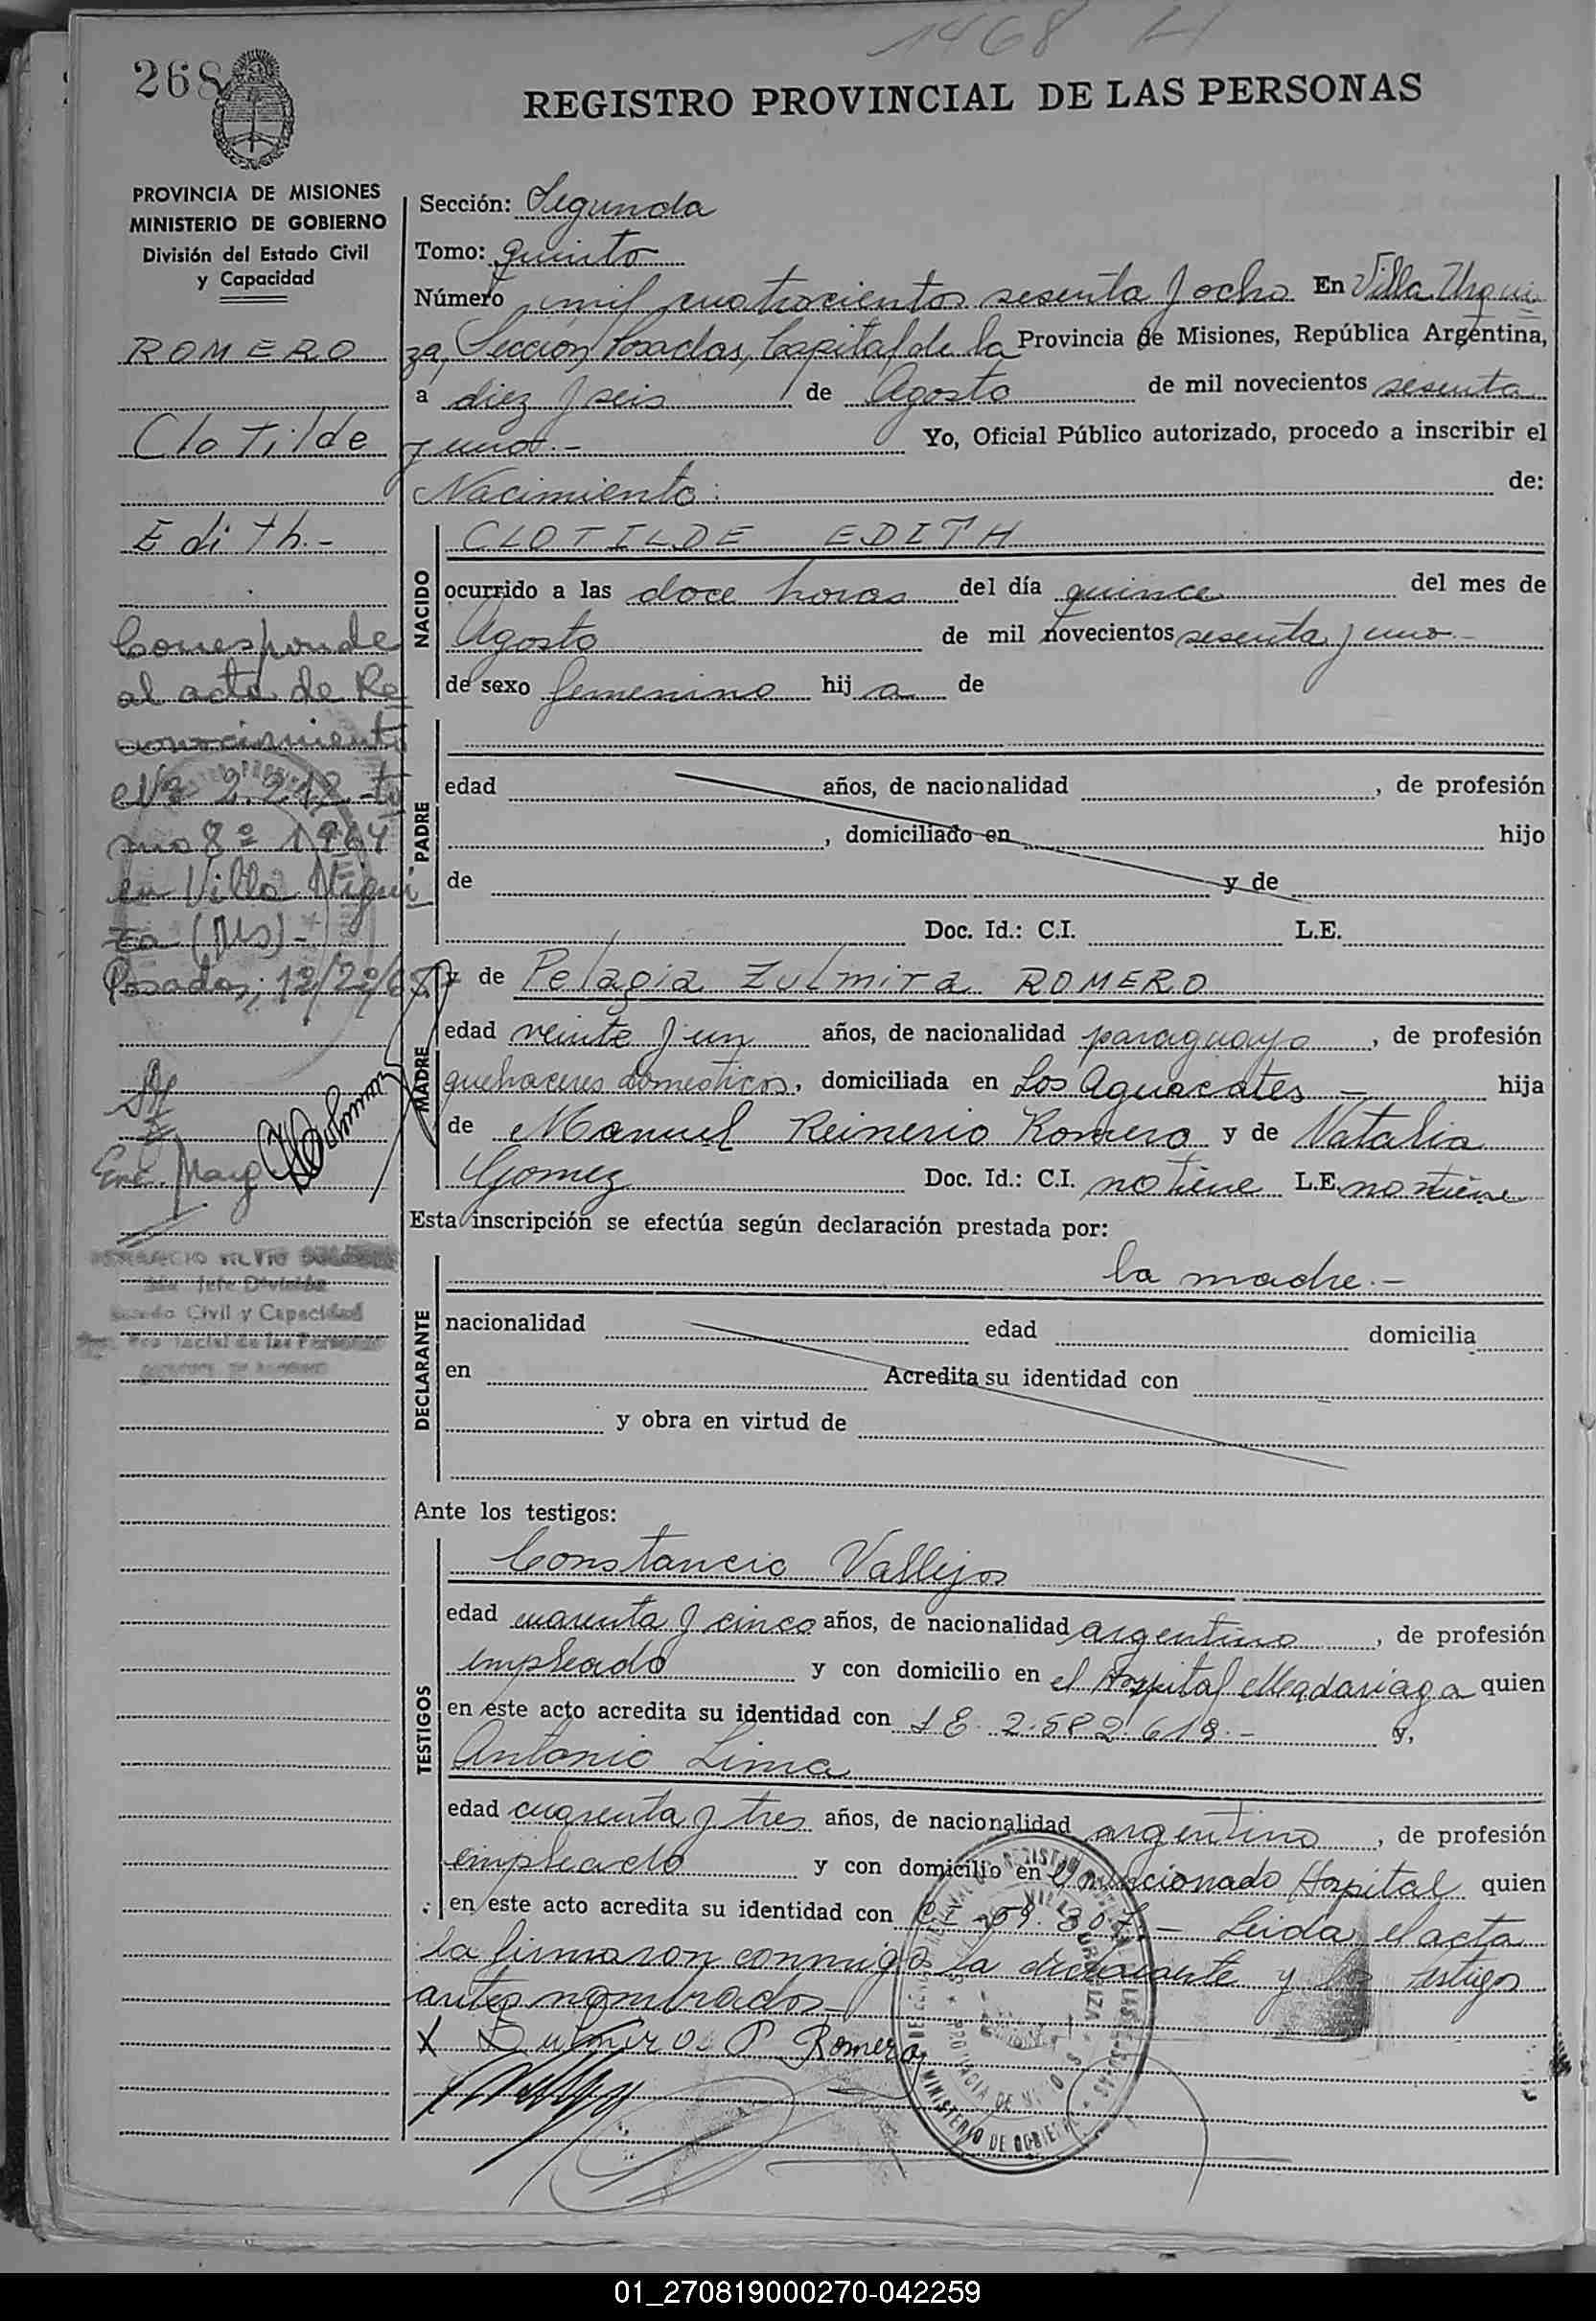 1468 H
268
REGISTRO PROVINCIAL DE LAS PERSONAS
PROVINCIA DE MISIONES
MINISTERIO DE GOBIERNO
División del Estado Civil
y Capacidad
ROMERO
Clotilde
Edith.-
Corresponde
al acta de Re
conocimiento
Nº 2.218-to
mo 8º 1964
en Villa Urqui
za (Ms)-
Posadas,
Enc. Marg
Jefe División
Estado Civil y Capacidad
Sección: Segunda
Tomo: quinto
Número mil cuatrocientos sesenta y ocho En Villa Urqui
za, Sección Posadas, Capital de la Provincia de Misiones, República Argentina,
a diez y seis de Agosto de mil novecientos sesenta
y uno.- Yo, Oficial Público autorizado, procedo a inscribir el
Nacimiento: de:
NACIDO
CLOTILDE EDITH
ocurrido a las doce horas del día quince del mes de
Agosto de mil novecientos sesenta y uno.-
de sexo femenino hija de
PADRE
edad años, de nacionalidad , de profesión
, domiciliado en hijo
de y de
Doc. Id.: C.I. L.E.
MADRE
y de Pelagia Zulmira ROMERO
edad veinte y un años, de nacionalidad paraguaya, de profesión
quehaceres domesticos, domiciliada en Los Aguacates - hija
de Manuel Reinerio Romero y de Natalia
Gomez Doc. Id.: C.I. no tiene L.E. no tiene
Esta inscripción se efectúa según declaración prestada por:
DECLARANTE
la madre.-
nacionalidad edad domicilia
en Acredita su identidad con
y obra en virtud de
Ante los testigos:
TESTIGOS
Constancio Vallejos
edad cuarenta y cinco años, de nacionalidad argentino, de profesión
empleado y con domicilio en el Hospital Madariaga quien
en este acto acredita su identidad con L E. 2.582.619.- y,
Antonio Lima
edad cuarenta y tres años, de nacionalidad argentino, de profesión
empleado y con domicilio en el mencionado Hospital quien
en este acto acredita su identidad con CI 59.307.- Leida el acta
la firmaron conmigo la declarante y los testigos
antes nombrados-
X Zulmira P Romero
01_270819000270-042259